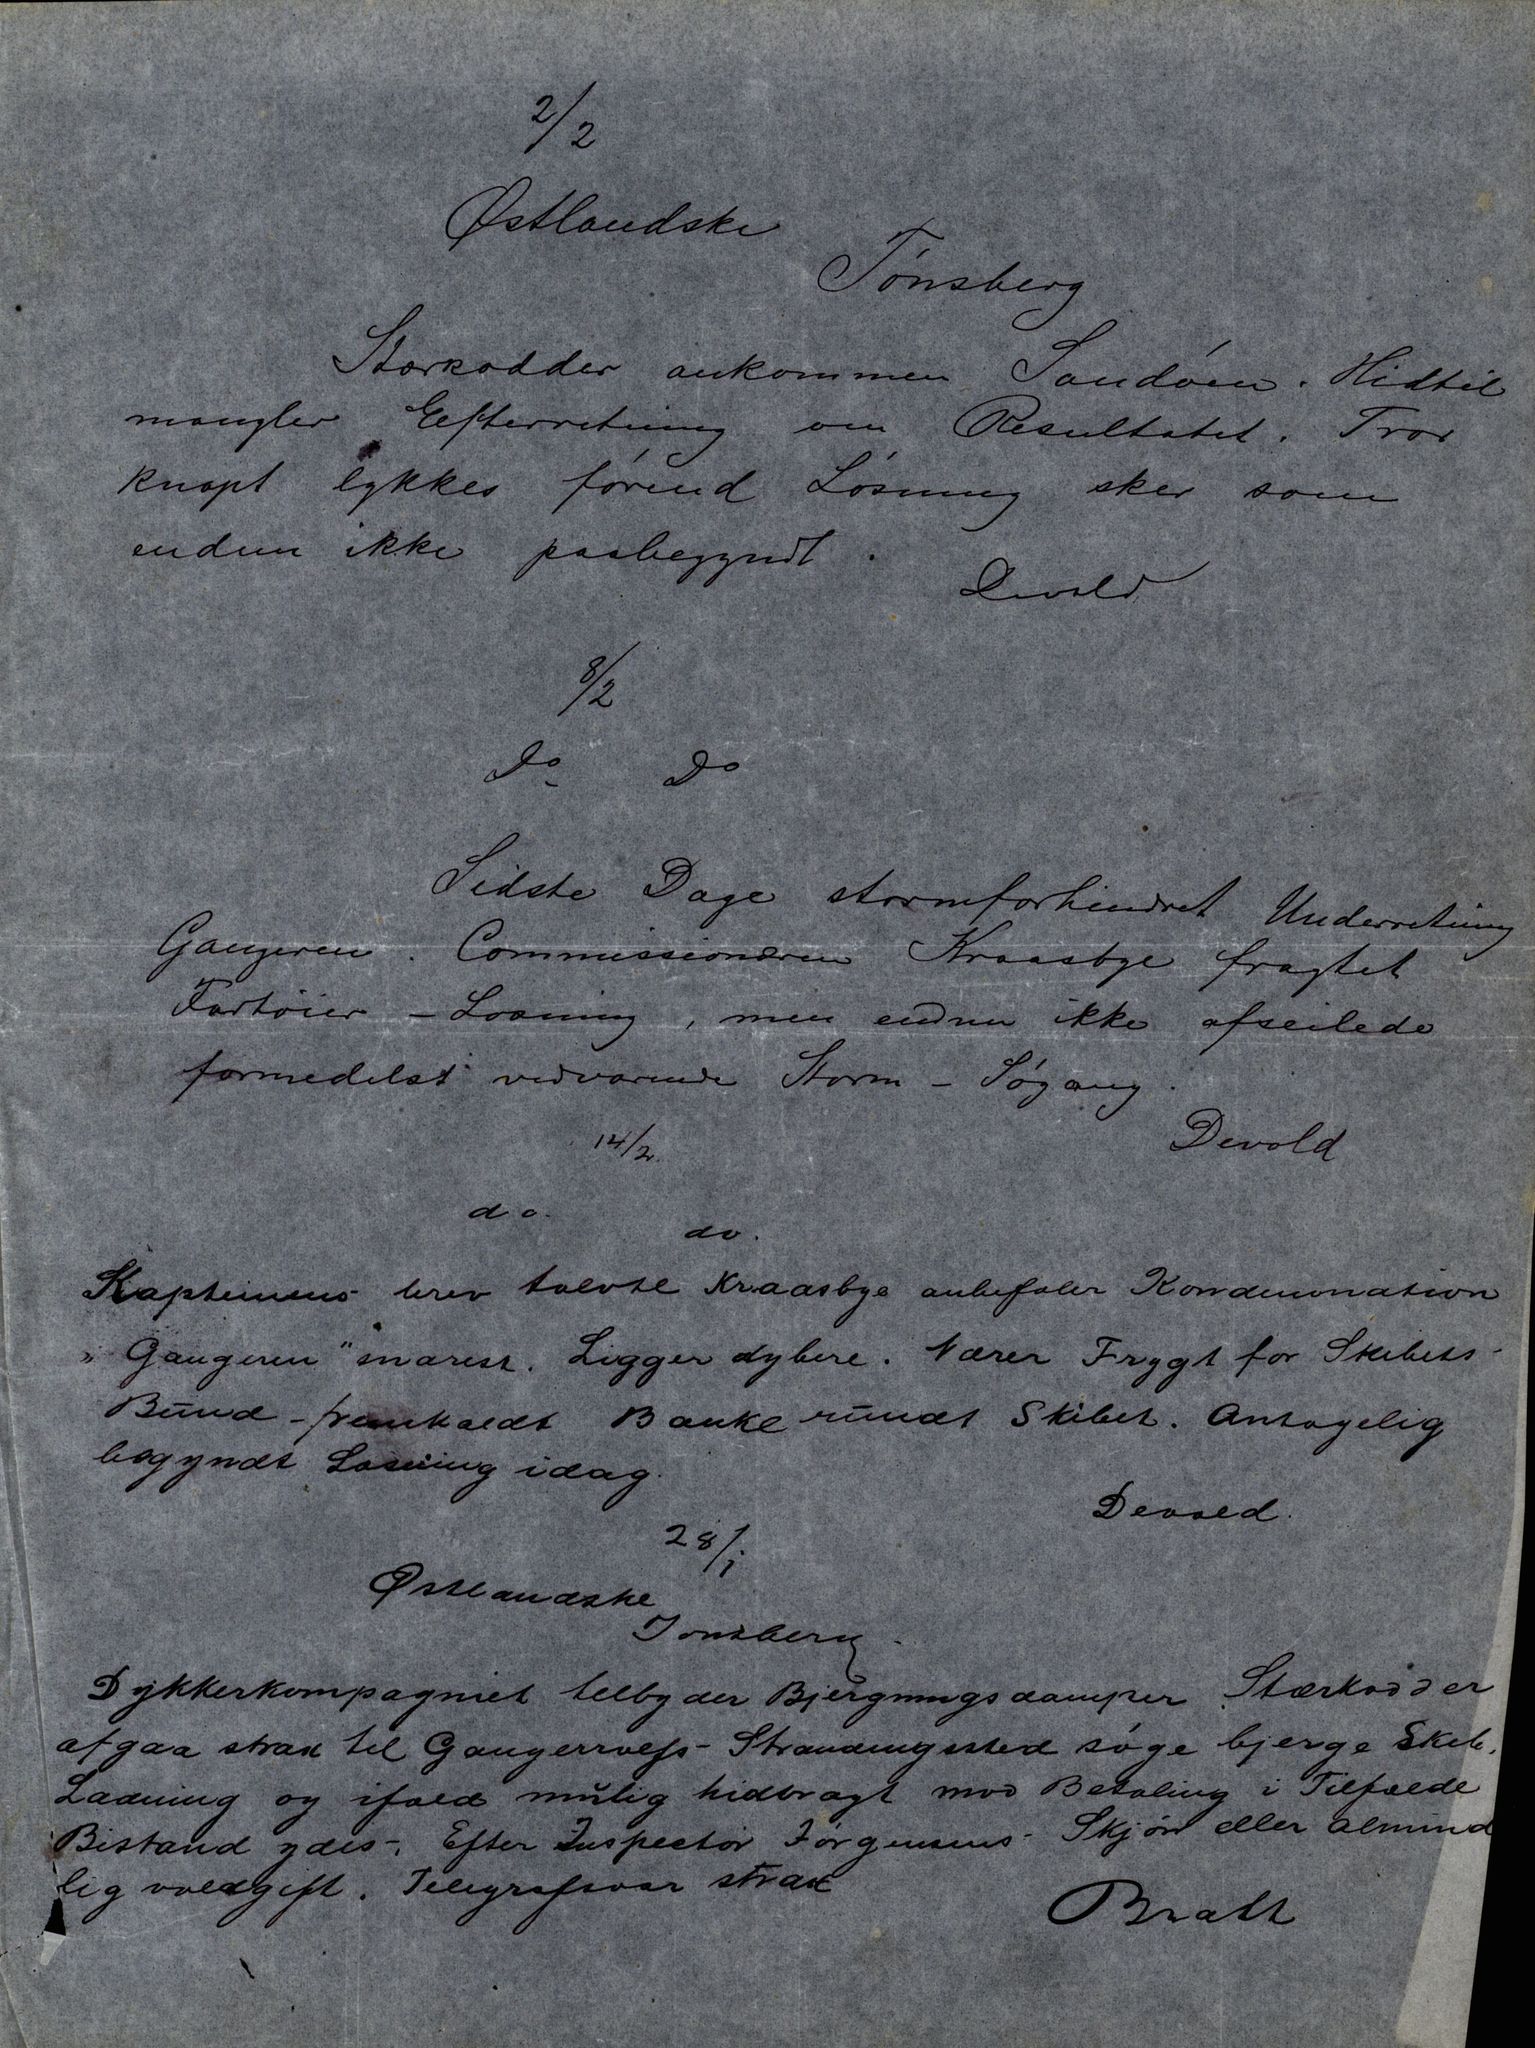 2/2
Østlandske
Tønsberg
Stærkodder ankommen Sandøen. Hidtil
mangler Eefterretning om Resultatet. Tror
knapt lykkes førend Løsning sker som
endnu ikke paabegyndt.
Devold
8/2
Do Do
Sidste Dage stormforhindret Underretning
Gangeren. Commissionæren Kraasbye fragtet
Fartøier - Losning, men endnu ikke afseilede
formedelst vedvarende Storm - Søgang.
Devold
14/2
do. do.
Kapteinens brev tolvte Kraasbye anbefaler Kondemnation
„Gangeren" snarest. Ligger dybere. Nærer Frygt for Skibets-
Bund - fremkaldt Banke rundt Skibet. Antagelig
begyndt Losning idag.
Devold.
28/1
Østlandske
Tønsberg.
Dykkerkompagniet tilbyder Bjergningsdamper Stærkodder
afgaa strax til Strandingssted søge bjerge Skib,
Ladning og ifald mulig hidbragt mod Betaling i Tilfælde
Bistand ydes. Efter Inspector Jørgensens Skjøn eller almind
lig voldgift. Telegrafsvar strax
Bratt